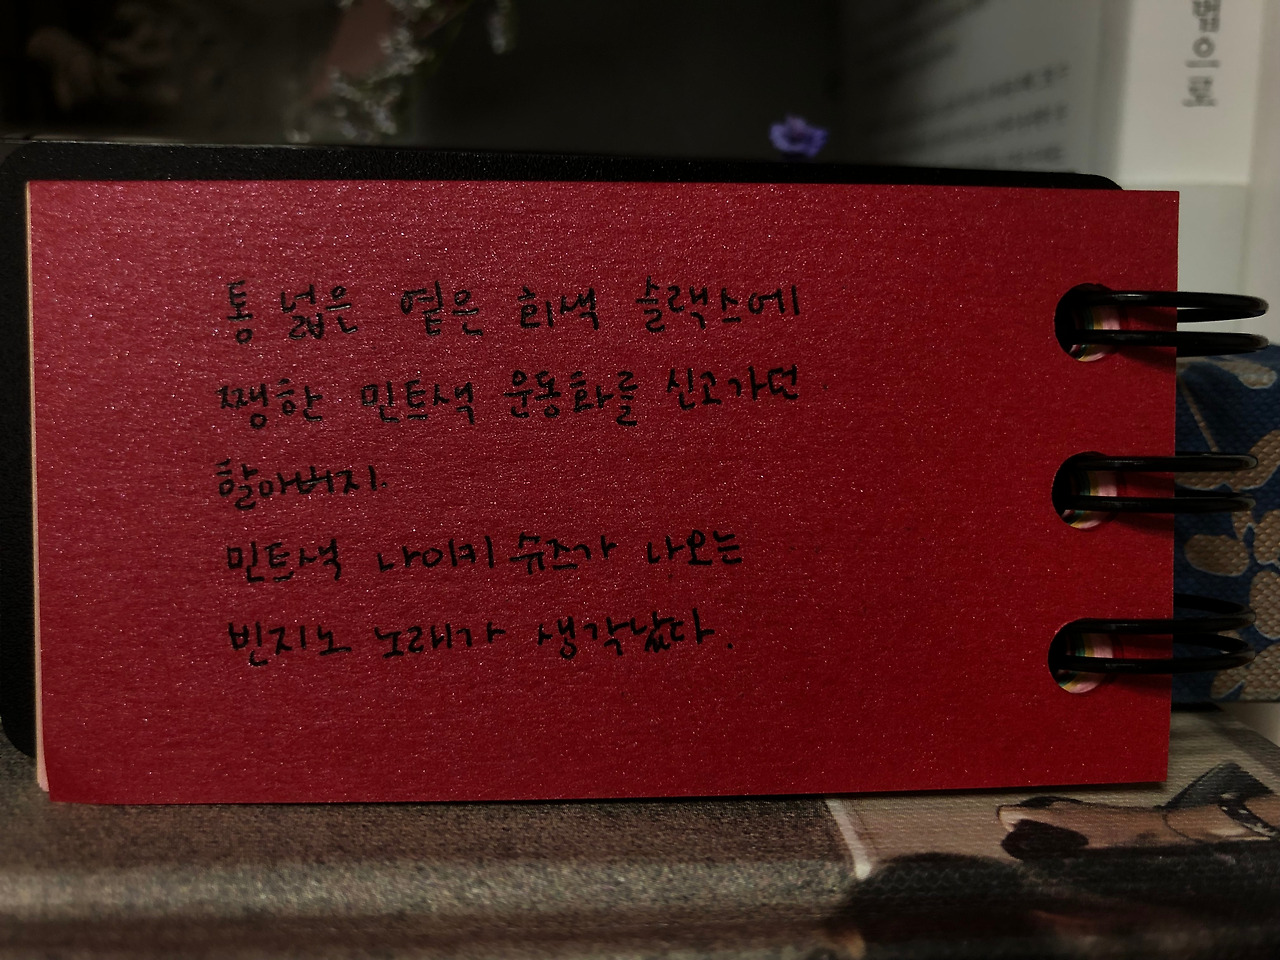 통 넓은 옅은 회색 슬랙스에
쨍한 민트색 운동화를 신고가던
할아버지.
민트색 나이키 슈즈가 나오는
빈지노 노래가 생각났다.